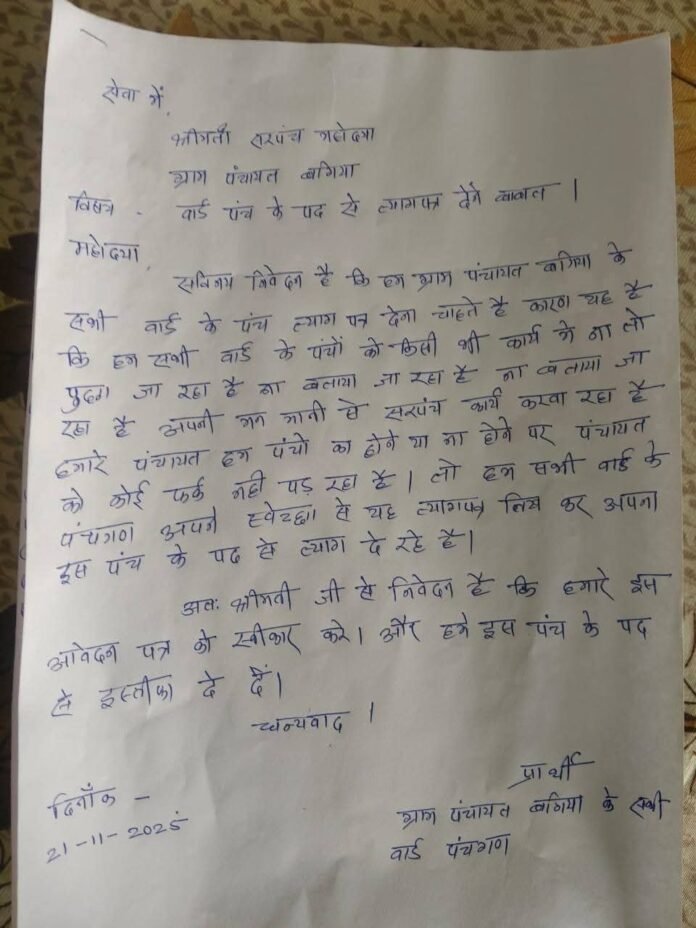 सेवा में,
श्रीमती सरपंच महोदया
ग्राम पंचायत बगिया
विषय - वार्ड पंच के पद से त्यागपत्र देने बाबत ।
महोदया,
सविनय निवेदन है कि हम ग्राम पंचायत बगिया के
सभी वार्ड के पंच त्याग पत्र देना चाहते है कारण यह है
कि हम सभी वार्ड के पंचों को किसी भी कार्य मे ना तो
पुछा जा रहा है ना बताया जा रहा है ना बताया जा
रहा है अपनी मन मानी से सरपंच कार्य करवा रहा है
हमारे पंचायत हम पंचो का होने या ना होने पर पंचायत
को कोई फर्क नही पड़ रहा है । तो हम सभी वार्ड के
पंचगण अपने स्वेच्छा से यह त्यागपत्र लिख कर अपना
इस पंच के पद से त्याग दे रहे है ।
अतः श्रीमती जी से निवेदन है कि हमारे इस
आवेदन पत्र को स्वीकार करे । और हमे इस पंच के पद
से इस्तीफा दे दें ।
धन्यवाद ।
प्रार्थी
दिनाँक -
ग्राम पंचायत बगिया के सभी
21-11-2025
वार्ड पंचगण